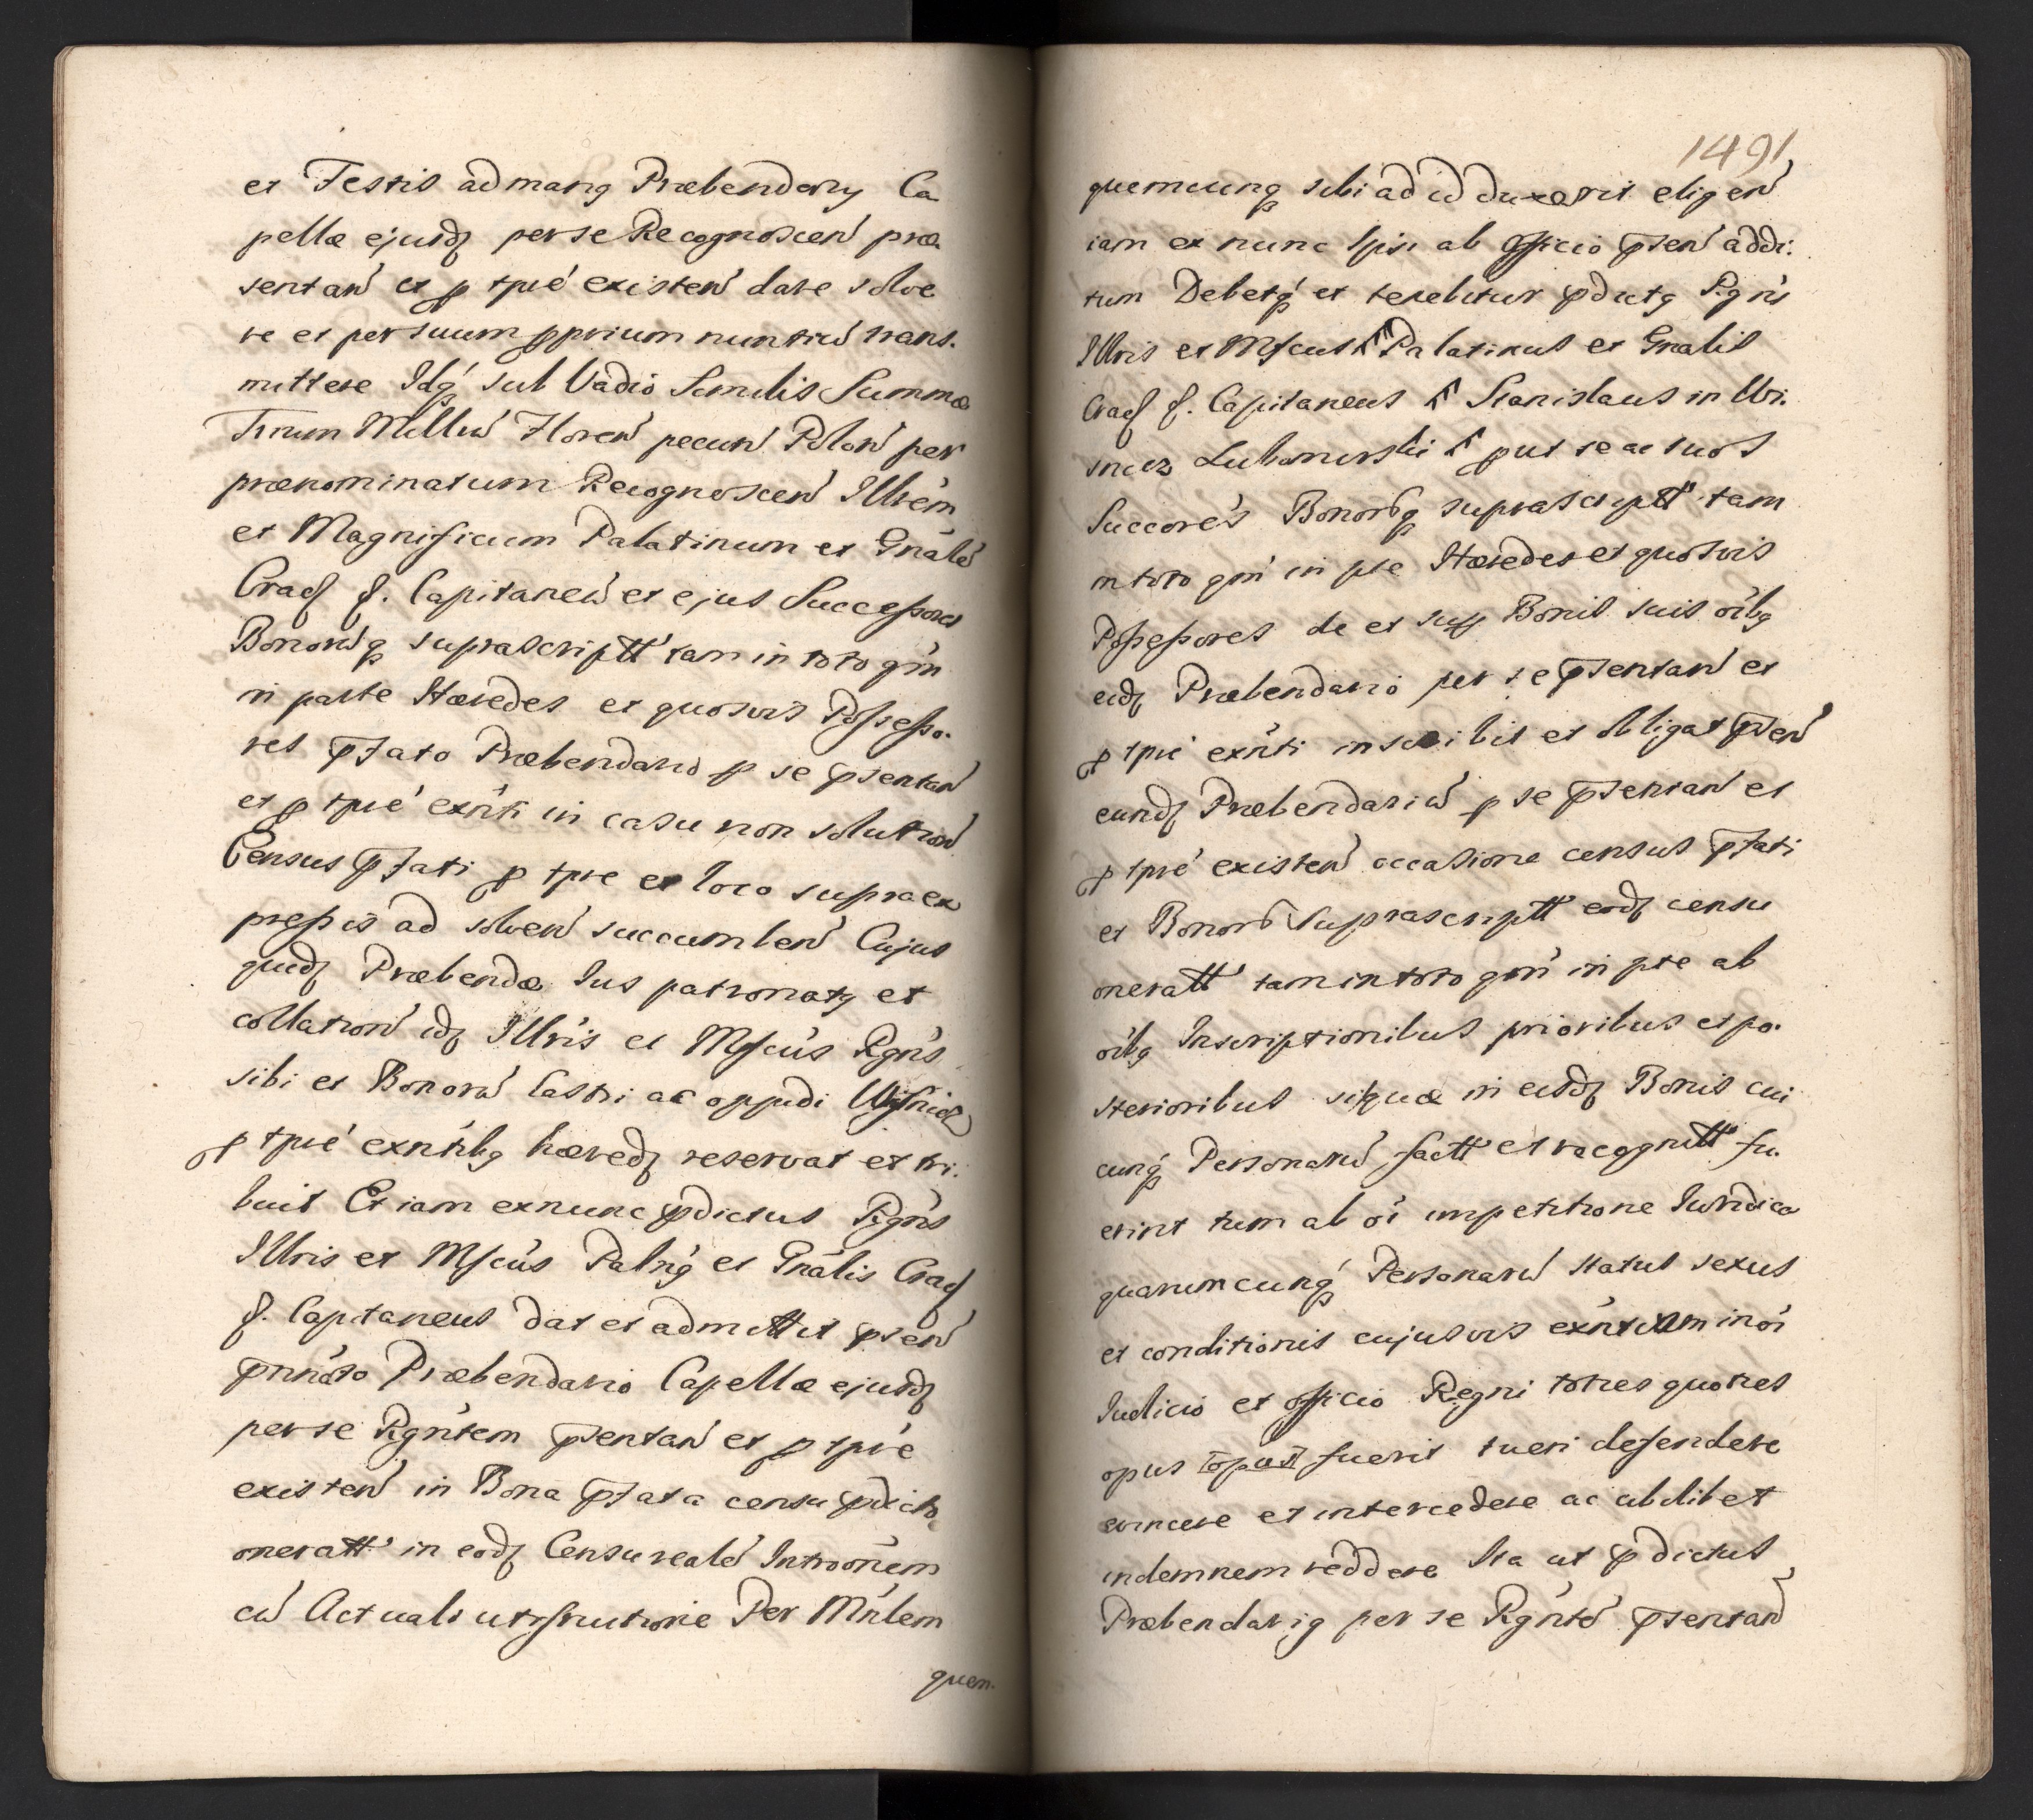 et Festis ad manꝯ Præbendarÿ Ca
pellæ ejusdꝫ per se Recognoscen̄ præ
sentan̄ et ꝓ tpre existen̄ dare solve
re et per suum ꝓprium nuntiū trans.
mittere Idqꝫ sub Vadio Similis Summæ
Trium Milliū Floren̄ pecun̄ Polon̄ per
prænominatum Recognoscen̄ Illrem
et Magnificum Palatinum et Gnalē
Cracꝭ ꝭ. Capitaneū et ejus Successores
Bonorūqꝫ suprascriptt tam in toto qm̄
in parte Hæredes et quosvis Possesso.
res p̄fato Præbendario ꝑ se p̄sentan̄
et ꝓ tpre exn̄ti in casu non solution̄
Census p̄fati ꝓ tpre et loco supra ex
pressis ad solven̄ succumben̄ Cujus
quidꝫ Præbendæ Ius patronatꝯ et
collation̄ idꝫ Illris et Mfcus Rgn̄s
sibi et Bonorū Castri ac oppidi Wisnicz
ꝓ tpre exn̄tibꝯ hæredꝫ reservat et tri.
buit Et iam exnunc p̄dictus Rgn̄s
Illris et Mfcus Palnꝯ et Gnalis Cracꝭ
ꝭ. Capitaneus dat et admittit p̄sen̄
p̄nn̄ato Præbendario Capellæ ejusdꝫ
per se Rgn̄tem p̄sentan̄ et ꝓ tpre
existen̄ in Bona p̄fata censu p̄dicto
oneratt in eodꝫ Censu realē Introōnem
cū Actuali utifruitione Per Mn̄lem
quem.
1491
quemcunqꝫ sibi ad id duxerit eligen̄
iam ex nunc Ipsi ab officio p̄sen̄ addi.
tum Debetqꝫ et tenebitur p̄dictꝯ Rgn̄s
Illris et Mfcus Palatinus et Gnalis
Cracꝭ ꝭ. Capitaneus Stanislaus in Wi.
snicz Lubomirski put se ac suos
Succores Bonorūqꝫ suprascriptt tam
in toto qm̄ in pte Hæredes et quosvis
Possessores de et supꝫ Bonis suis oībꝯ
eidꝫ Præbendario per se p̄sentan̄ et
ꝓ tpre exn̄ti inscribit et obligat p̄sen̄
eundꝫ Præbendariū ꝑ se p̄sentan̄ et
ꝓ tpre existen̄ occasione census p̄fati
et Bonorū Suprascriptt eodꝫ censu
oneratt tam in toto qm̄ in pte ab
oībꝯ Inscriptionibus prioribus et po.
sterioribus siquæ in eisdꝫ Bonis cui
cunqꝫ Personarū factt et recognitt fu.
erint tum ab oi impetitione Iuridica
quarumcunqꝫ Personarū status sexus
et conditionis cujusvis exn̄tium in oi
Iudicio et officio Regni toties quoties
opus opus fuerit tueri defendere
evincere et intercedere ac ubilibet
indemnem reddere Ita ut p̄dictus
Præbendariꝯ per se Rgn̄tē p̄sentan̄